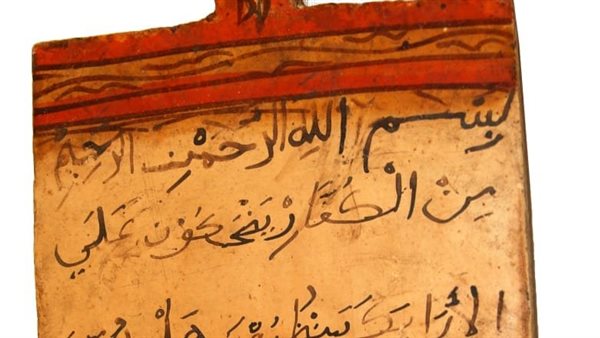 بِسْمِ اللهِ الرَّحْمٰنِ الرَّحِيمِ
مِنَ الْكُفَّارِ يَضْحَكُونَ عَلَي
الأَرَايِكِ يَنظُرُونَ هَلْ